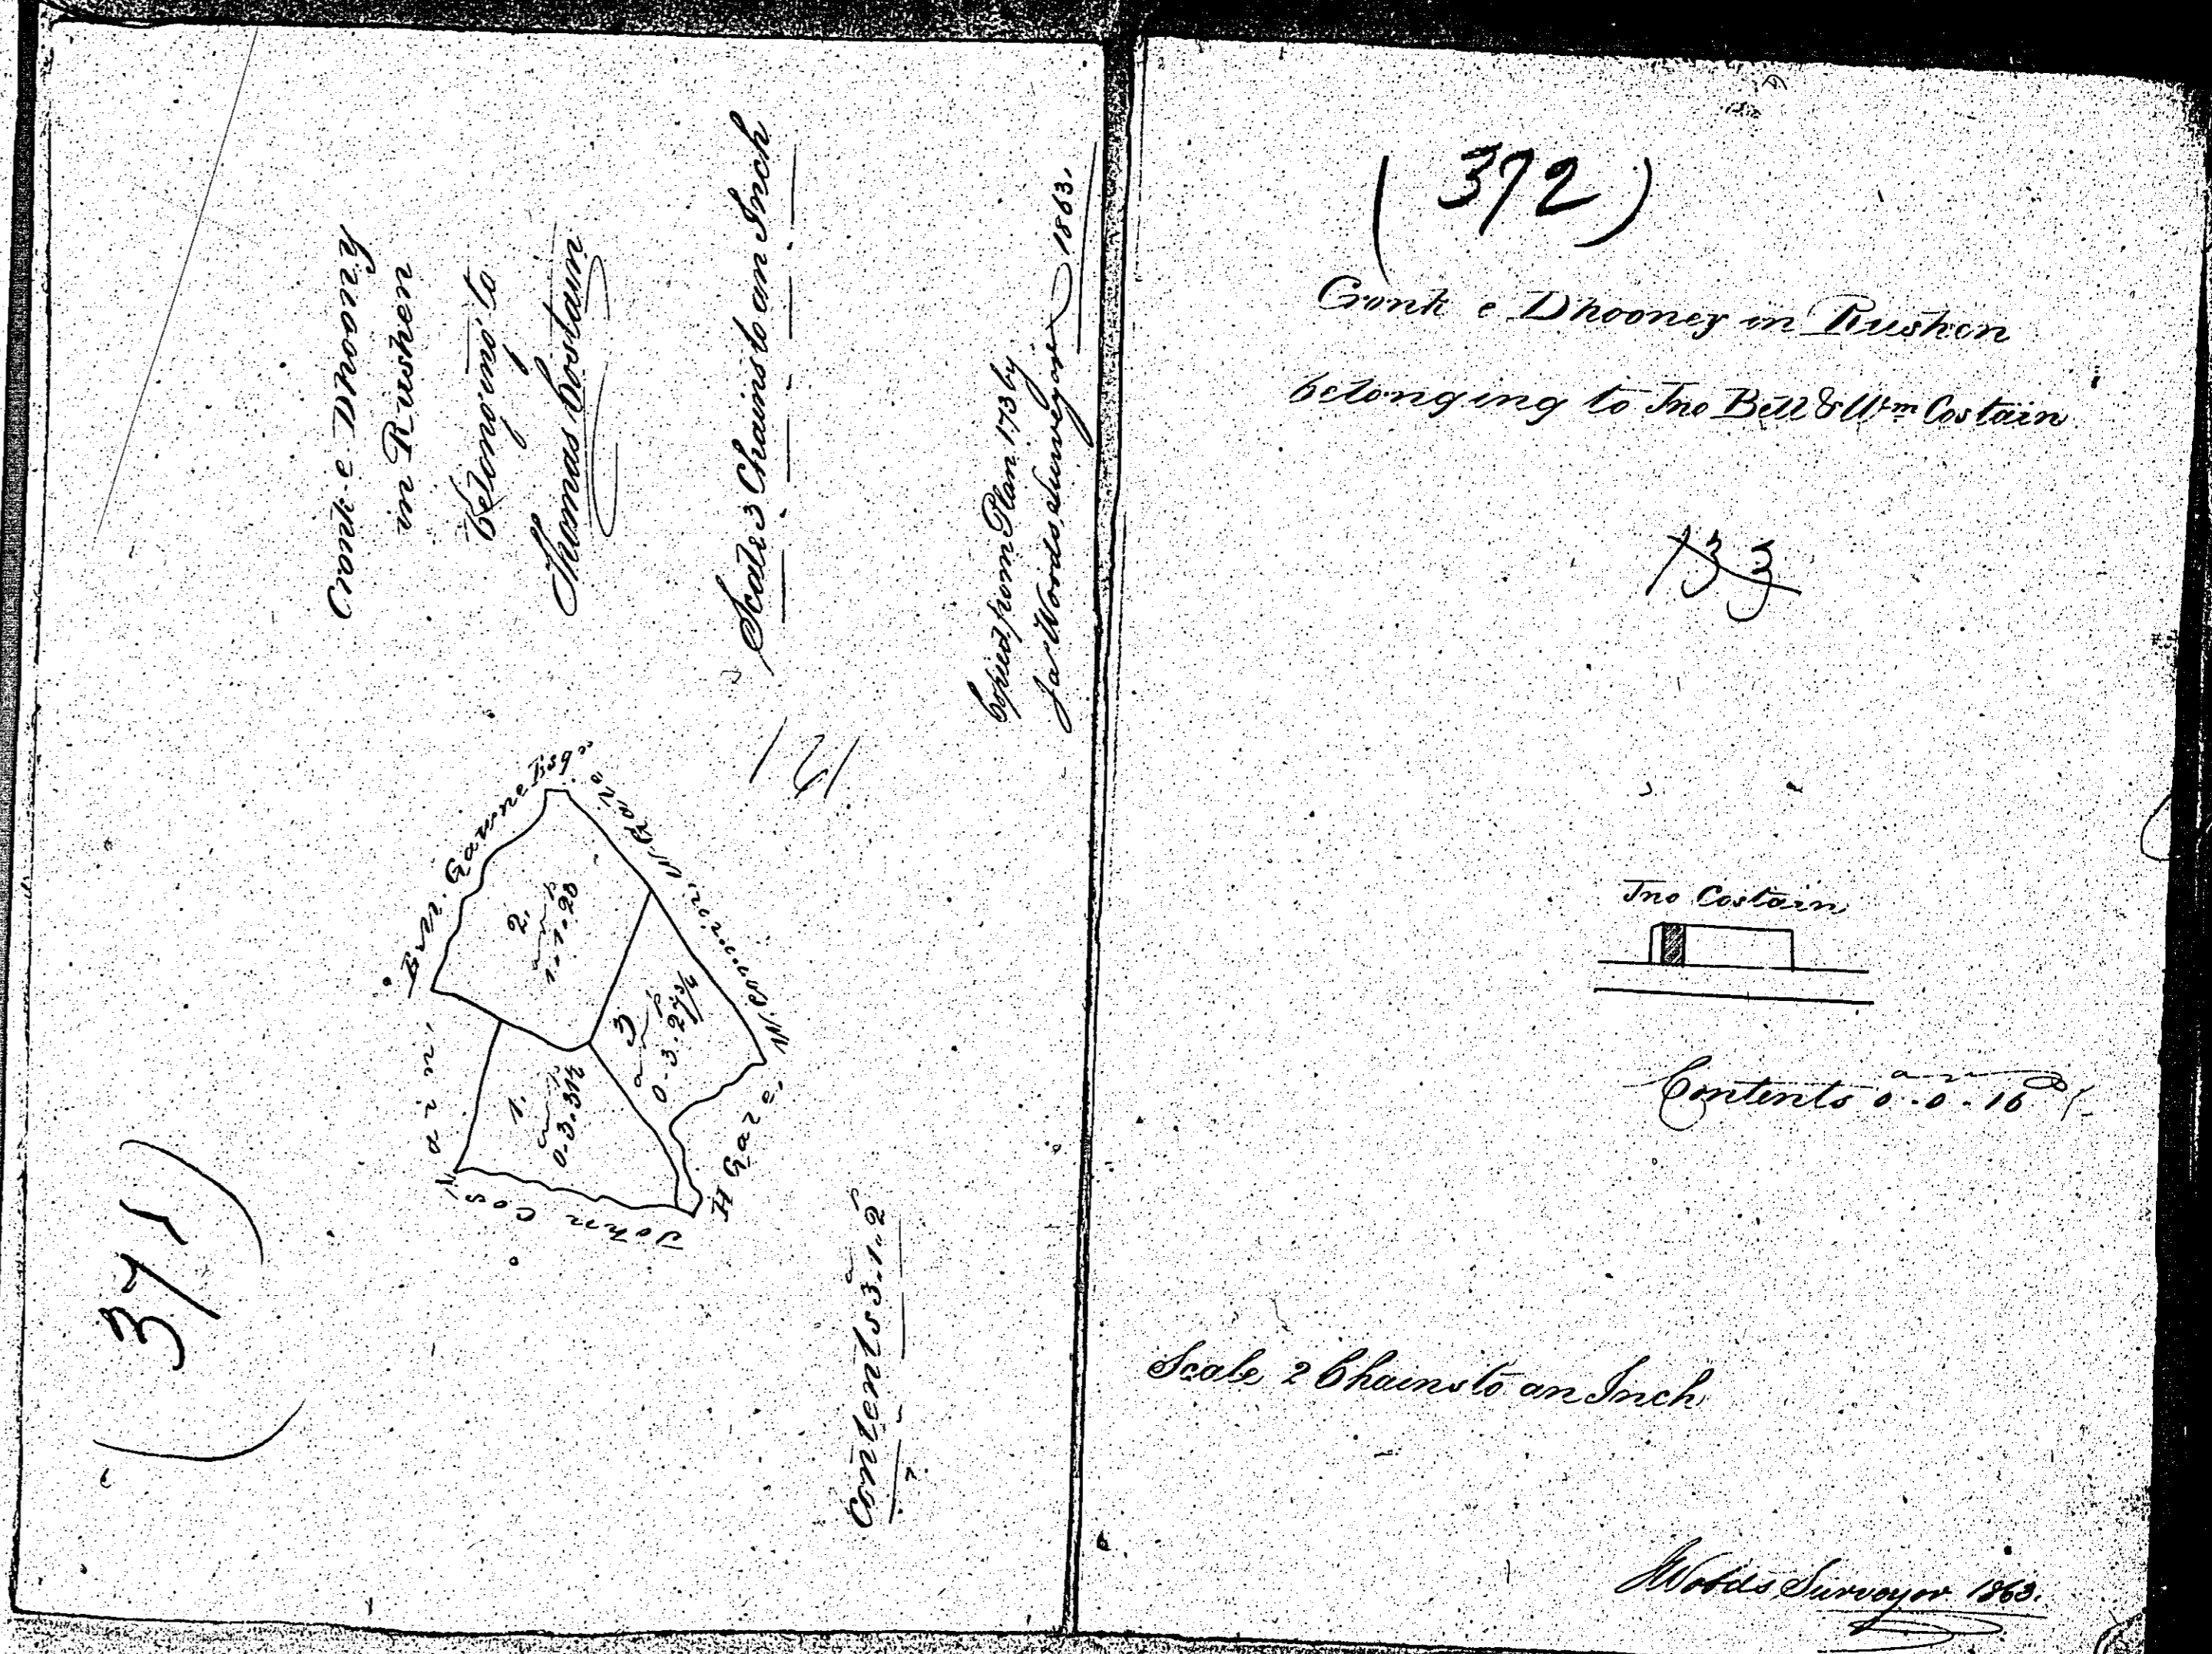 (371)
Cronk e Dhooney
in Rushen
belonging to
Thomas Costain
Scale 3 Chains to an Inch
Copied from Plan 173 by
Jas Woods, Surveyor 1863.
121
Edwd. Gawne Esqre
2.
a r p
1..1..20
1.
a r p
0.3.31½
3
a r p
0.3.27¾
John Costain
H Gale
Contents 3.1.2
(372)
Cronk e Dhooney in Rushen
belonging to Jno Bell & Wm Costain
133
Jno Costain
a r p
Contents 0.0.16
Scale 2 Chains to an Inch
J Woods Surveyor 1863.